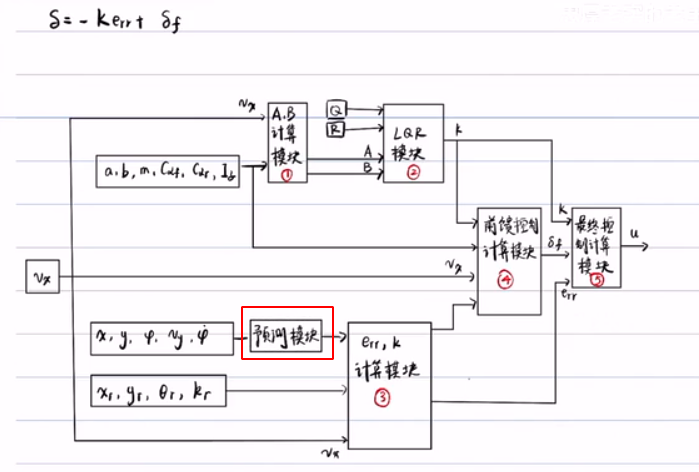 δ = - kerr + δf
vx
A,B
计算
模块
①
Q
R
A
B
LQR
模块
②
k
a, b, m, Cαf, Cαr, Iz
前馈控制
计算模块
④
k
δf
最终控
制计算
模块
⑤
u
err
vx
vx
x, y, φ, vy, φ̇
预测模块
err, k
计算模块
③
xr, yr, θr, kr
vx